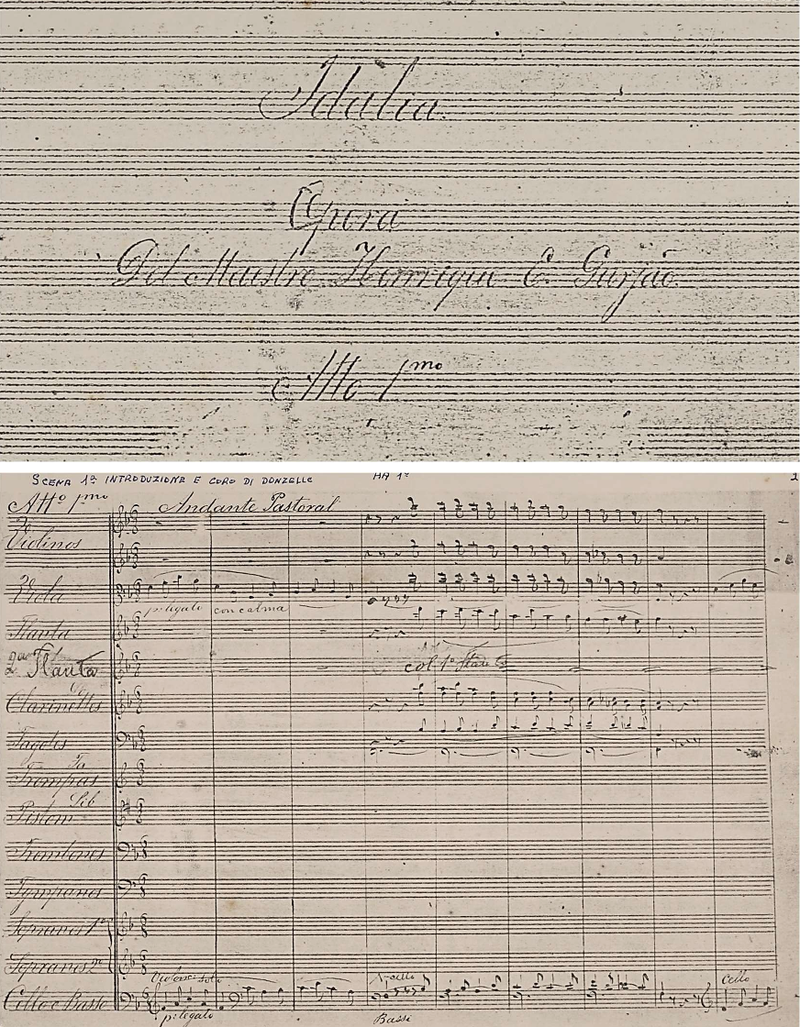 Idália
Opera
Del Maestro Henrique E. Gurjão
Atto 1mo
SCENA 1ª INTRODUZIONE E CORO DI DONZELLE
Atto 1mo
Andante Pastoral
Violinos
Viola
p. legato con calma
Flauta
2da Flauta
col 1º Flauta
Clarinettes
Fagotes
Fa
Trompas
Sib
Pistom
Trombones
Tympanos
Sopranos 1os
Sopranos 2os
Cello e Basso
Violonc. solo
p. legato
V-cello
Bassi
Cello